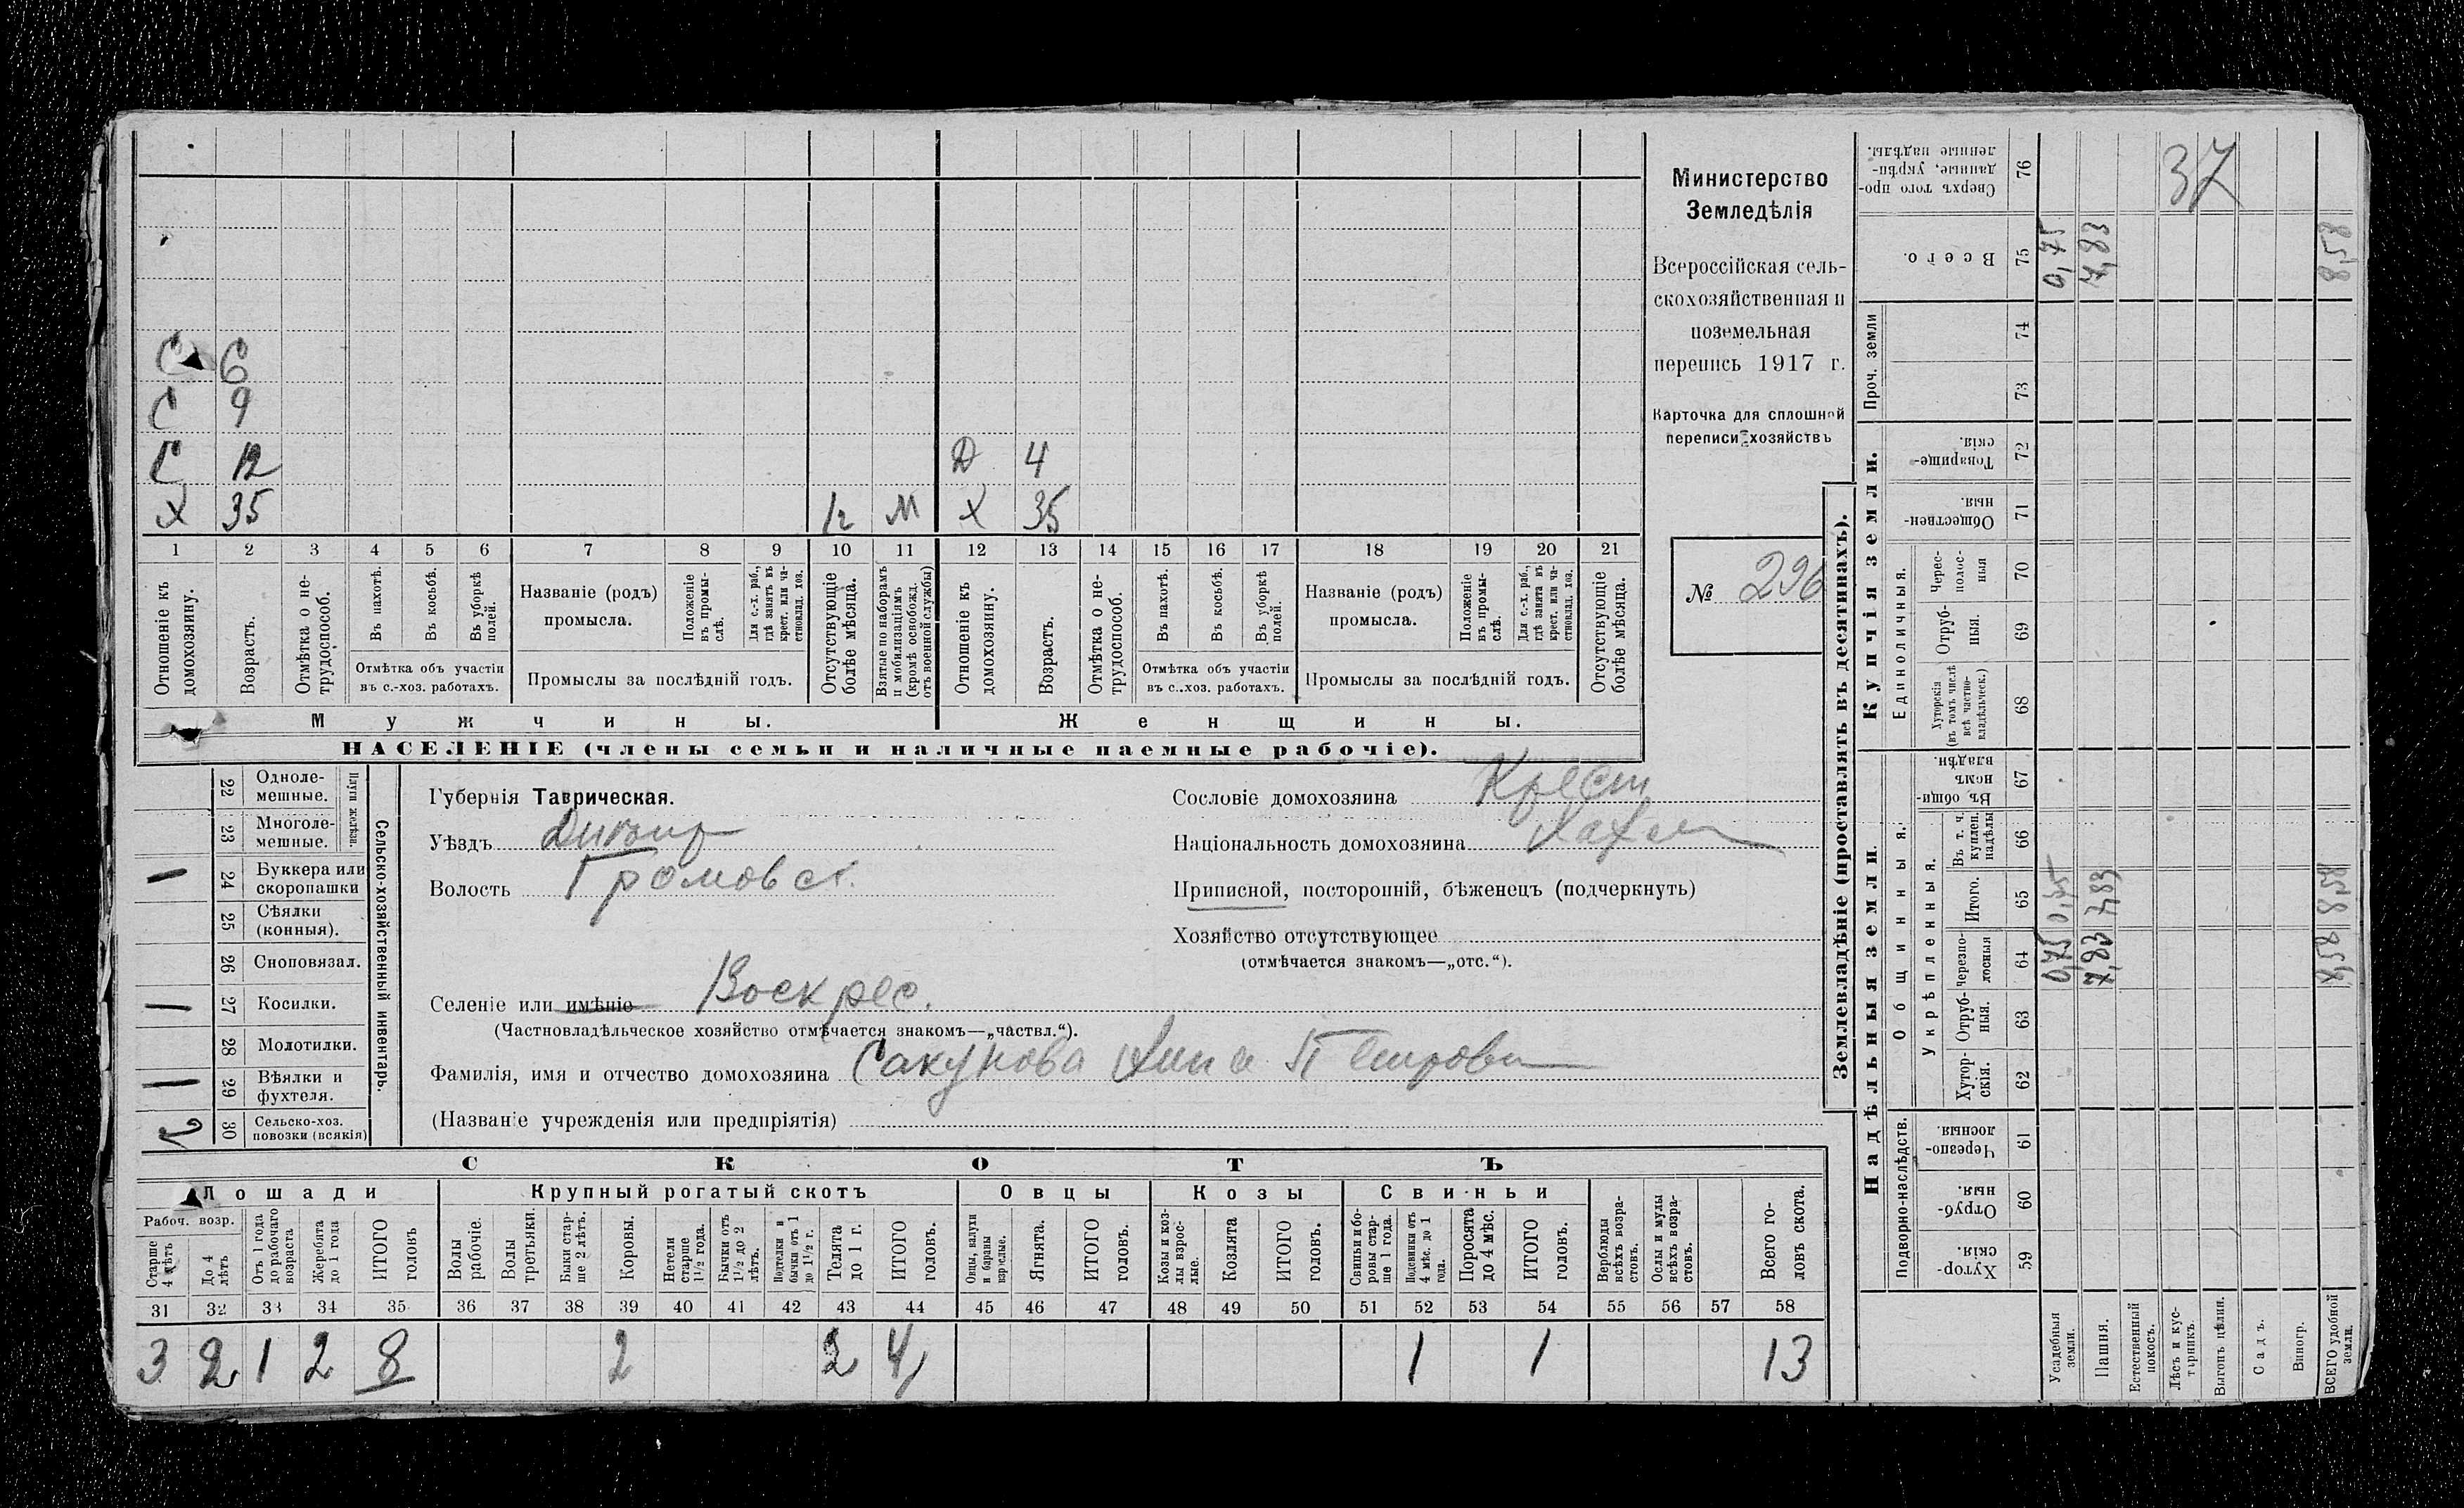 С 6
С 9
С 12 Д 4
Х 35 12 М Х 35
1 2 3 4 5 6 7 8 9 10 11 12 13 14 15 16 17 18 19 20 21
Отношеніе къ домохозяину.
Возрастъ.
Отмѣтка о не-
трудоспособ.
Въ пахотѣ.
Въ косьбѣ.
Въ уборкѣ полей.
Отмѣтка объ участіи
въ с.-хоз. работахъ.
Названіе (родъ)
промысла.
Положеніе въ промы-
слѣ.
Для с.-х. раб., гдѣ занятъ въ крест. или ча-
стновлад. хоз.
Промыслы за послѣдній годъ.
Отсутствующіе болѣе мѣсяца.
Взятые по наборамъ и мобилизаціямъ (кромѣ освобожд. отъ военной службы)
Отношеніе къ домохозяину.
Возрастъ.
Отмѣтка о не-
трудоспособ.
Въ пахотѣ.
Въ косьбѣ.
Въ уборкѣ полей.
Отмѣтка объ участіи
въ с.-хоз. работахъ.
Названіе (родъ)
промысла.
Положеніе въ промы-
слѣ.
Для с.-х. раб., гдѣ занята въ крест. или ча-
стновлад. хоз.
Промыслы за послѣдній годъ.
Отсутствующіе болѣе мѣсяца.
Мужчины. Женщины.
НАСЕЛЕНІЕ (члены семьи и наличные наемные рабочіе).
Министерство
Земледѣлія
Всероссійская сель-
скохозяйственная и
поземельная
перепись 1917 г.
Карточка для сплошной
переписи хозяйствъ
№ 296
Сельско-хозяйственный инвентарь.
Плуги желѣзн.
22 Одноле-
мешные.
23 Многоле-
мешные.
1 24 Буккера или
скоропашки
25 Сѣялки
(конныя).
26 Сноповязал.
1 27 Косилки.
28 Молотилки.
1 29 Вѣялки и
фухтеля.
2 30 Сельско-хоз.
повозки (всякія)
Губернія Таврическая.
Уѣздъ Днѣпр
Волость Громовск.
Селеніе или имѣніе Воскрес.
(Частновладѣльческое хозяйство отмѣчается знакомъ—„частвл.“).
Фамилія, имя и отчество домохозяина Сакунова Анна Петровн
(Названіе учрежденія или предпріятія)
Сословіе домохозяина Крест
Національность домохозяина Хахл
Приписной, посторонній, бѣженецъ (подчеркнуть)
Хозяйство отсутствующее
(отмѣчается знакомъ—„отс.“).
СКОТЪ
Лошади Крупный рогатый скотъ Овцы Козы Свиньи
Рабоч. возр.
Старше 4 лѣтъ
До 4 лѣтъ
Отъ 1 года до рабочаго возраста
Жеребята до 1 года
ИТОГО головъ
Волы рабочіе.
Волы третьяки.
Быки стар-
ше 2 лѣтъ.
Коровы.
Нетели старше 1½ года.
Бычки отъ 1½ до 2 лѣтъ.
Подтелки и бычки отъ 1 до 1½ г.
Телята до 1 г.
ИТОГО головъ.
Овцы, валухи и бараны взрослые.
Ягнята.
ИТОГО головъ.
Козы и коз-
лы взрос-
лые.
Козлята
ИТОГО головъ.
Свиньи и бо-
ровы стар-
ше 1 года.
Подсвинки отъ 4 мѣс. до 1 года.
Поросята до 4 мѣс.
ИТОГО головъ.
Верблюды всѣхъ возра-
стовъ.
Ослы и мулы всѣхъ возра-
стовъ.
Всего го-
ловъ скота.
31 32 33 34 35 36 37 38 39 40 41 42 43 44 45 46 47 48 49 50 51 52 53 54 55 56 57 58
3 2 1 2 8 2 2 4 1 1 13
Землевладѣніе (проставлять въ десятинахъ).
Надѣльныя земли.
Купчія земли.
Подворно-наслѣдств.
Общинныя.
Укрѣпленныя.
Единоличныя.
Проч. земли
Хутор-
скія. 59
Отруб-
ныя. 60
Черезпо-
лосныя. 61
Хутор-
скія. 62
Отруб-
ныя. 63
черезпо-
лосныя 64
Итого. 65
Въ т. ч. куплен. надѣлы 66
Въ общи-
номъ владѣн. 67
Хуторскія (въ томъ числѣ всѣ частно-
владѣльческ.) 68
Отруб-
ныя. 69
Черес-
полос-
ныя 70
Обществен-
ныя. 71
Товарище-
скія. 72
73
74
Всего. 75
Сверхъ того про-
данные, укрѣп-
ленные надѣлы. 76
37
Усадебныя земли. 0,75 0,75 0,75
Пашня. 7,83 7,83 7,83
Естественный покосъ.
Лѣсъ и кус-
тарникъ.
Выгонъ цѣлин.
Садъ.
Виногр.
ВСЕГО удобной земли. 8,58 8,58 8,58